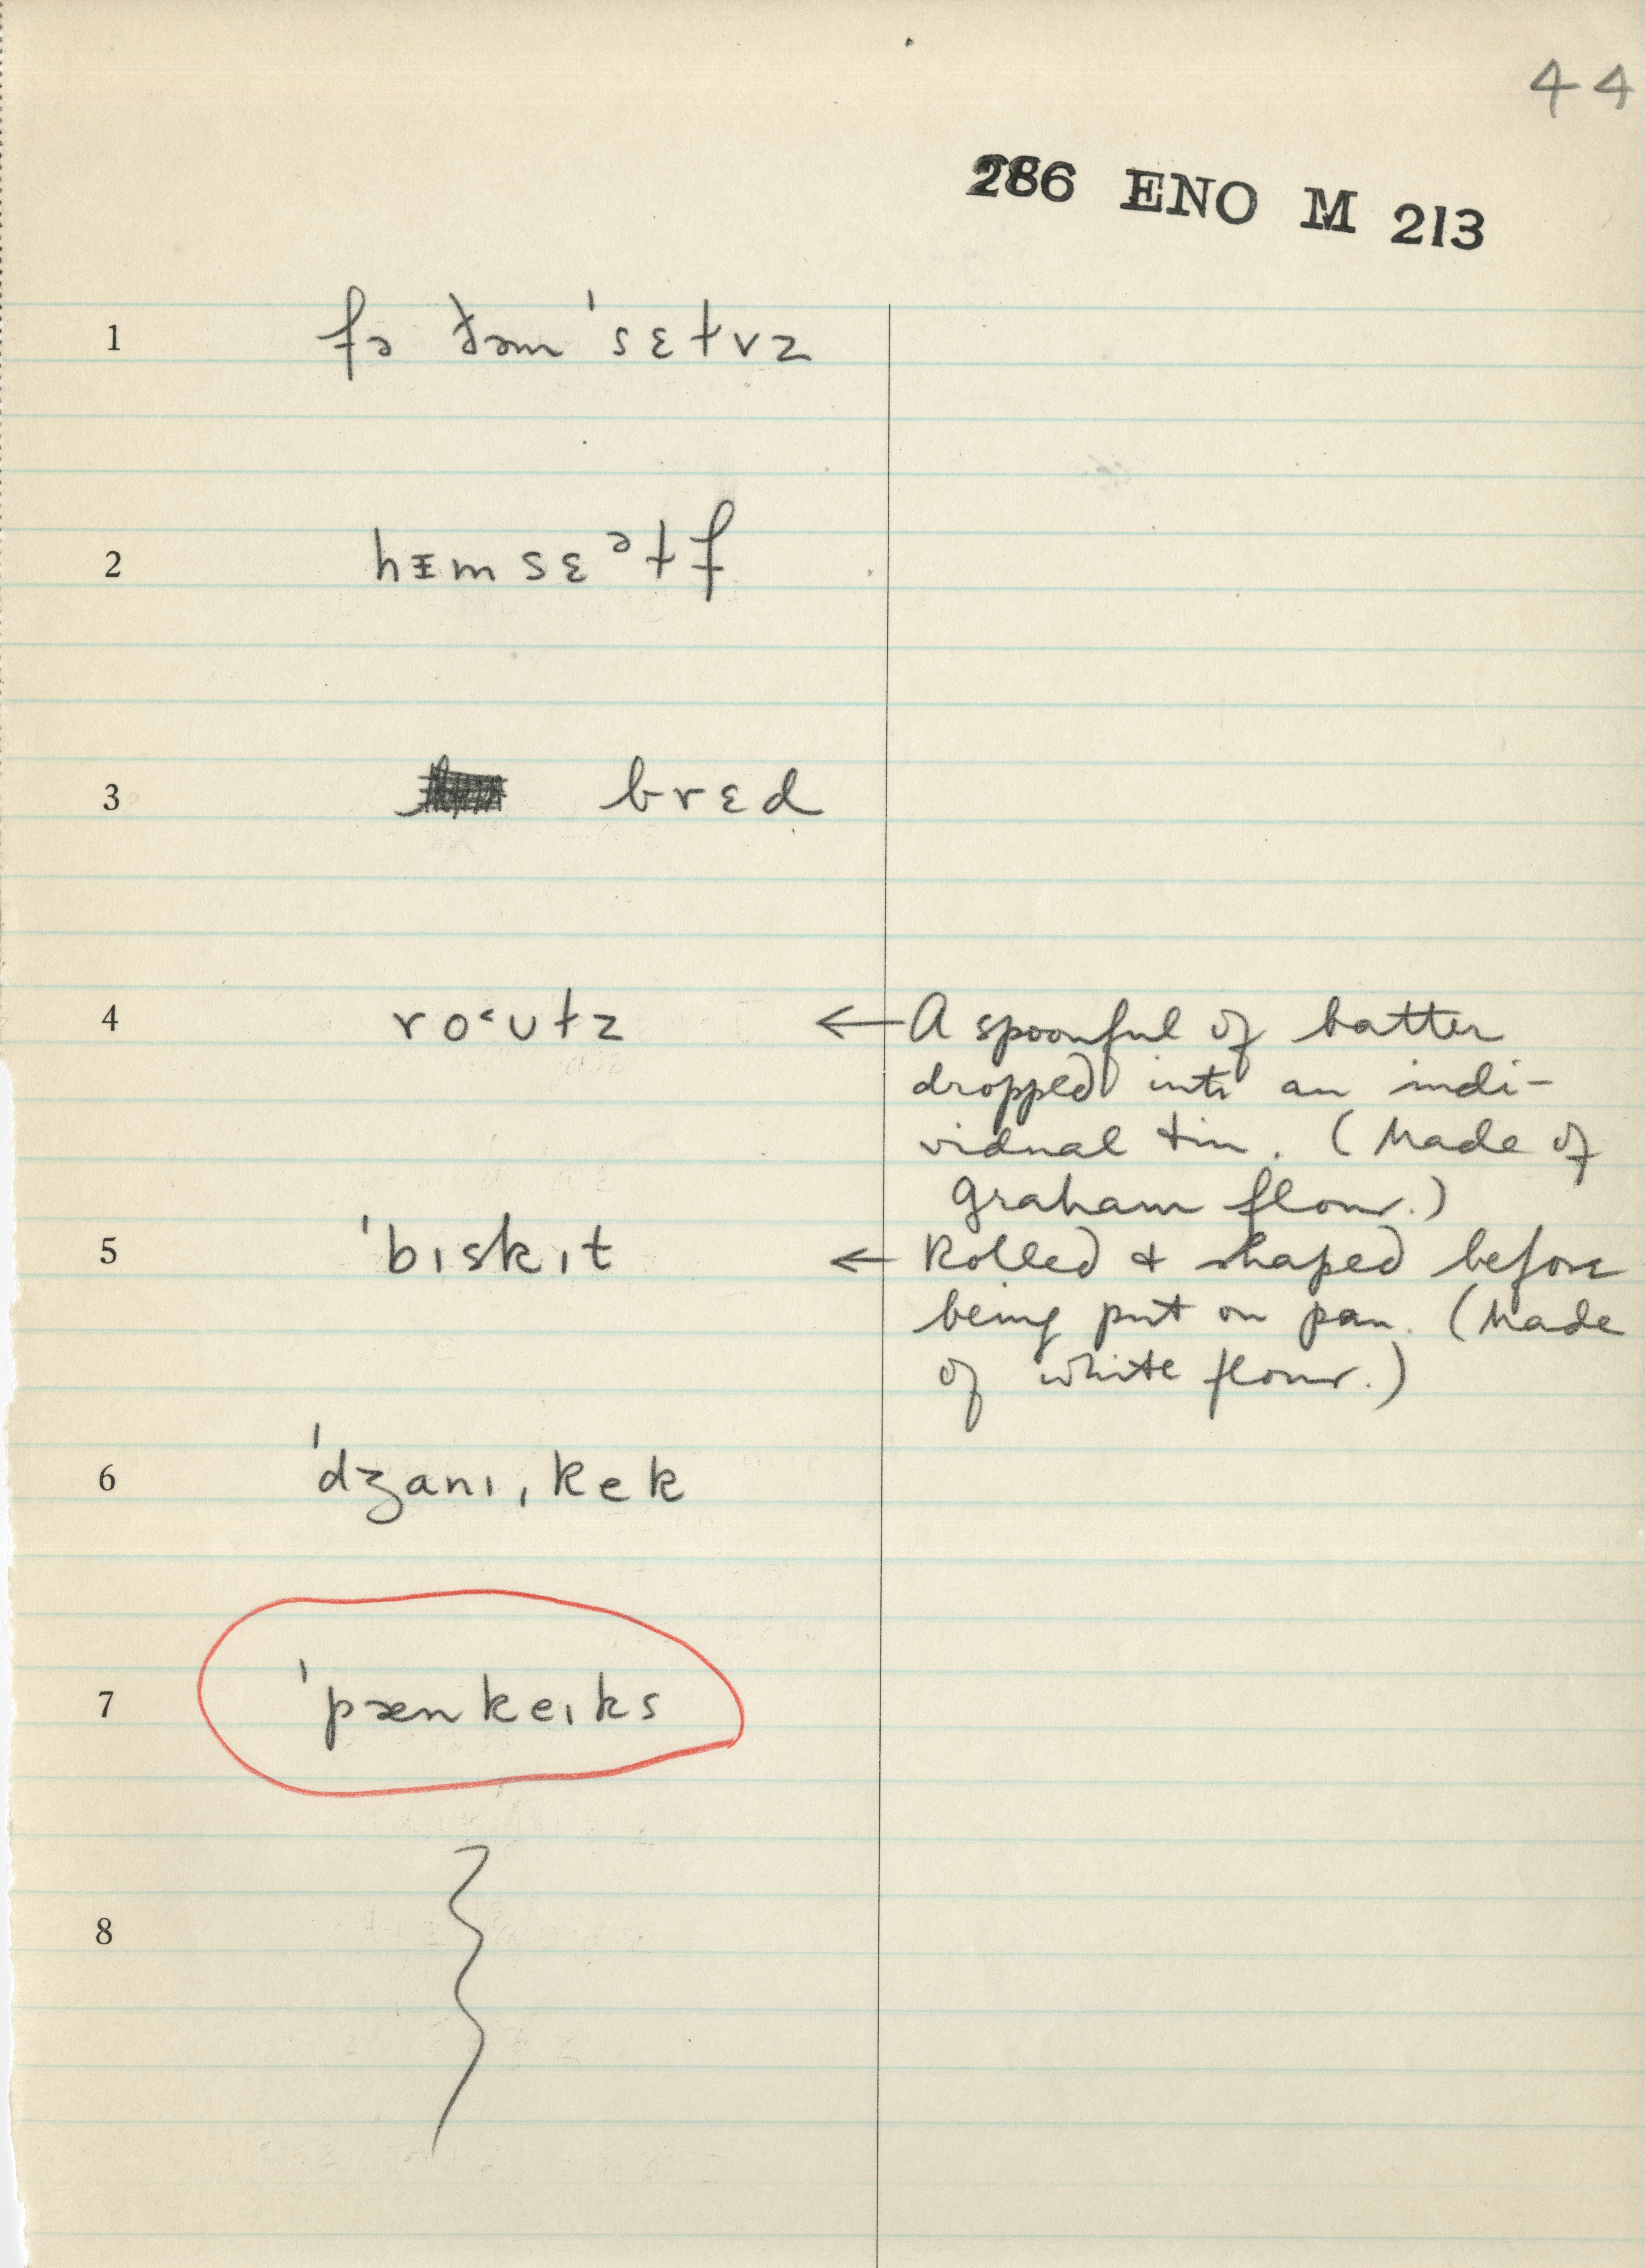 44
286 ENO M 213
1 fə ðəmˈsɛɫvz
2 hɪmsɛᵊɫf
3 brɛd
4 ro˂ʊɫz ← A spoonful of batter
dropped into an indi-
vidual tin. (Made of
Graham flour.)
5 ˈbɪskɪt ← Rolled & shaped before
being put on pan. (Made
of white flour.)
6 ˈdʒanɪˌkek
7 ˈpænkeɪks
8